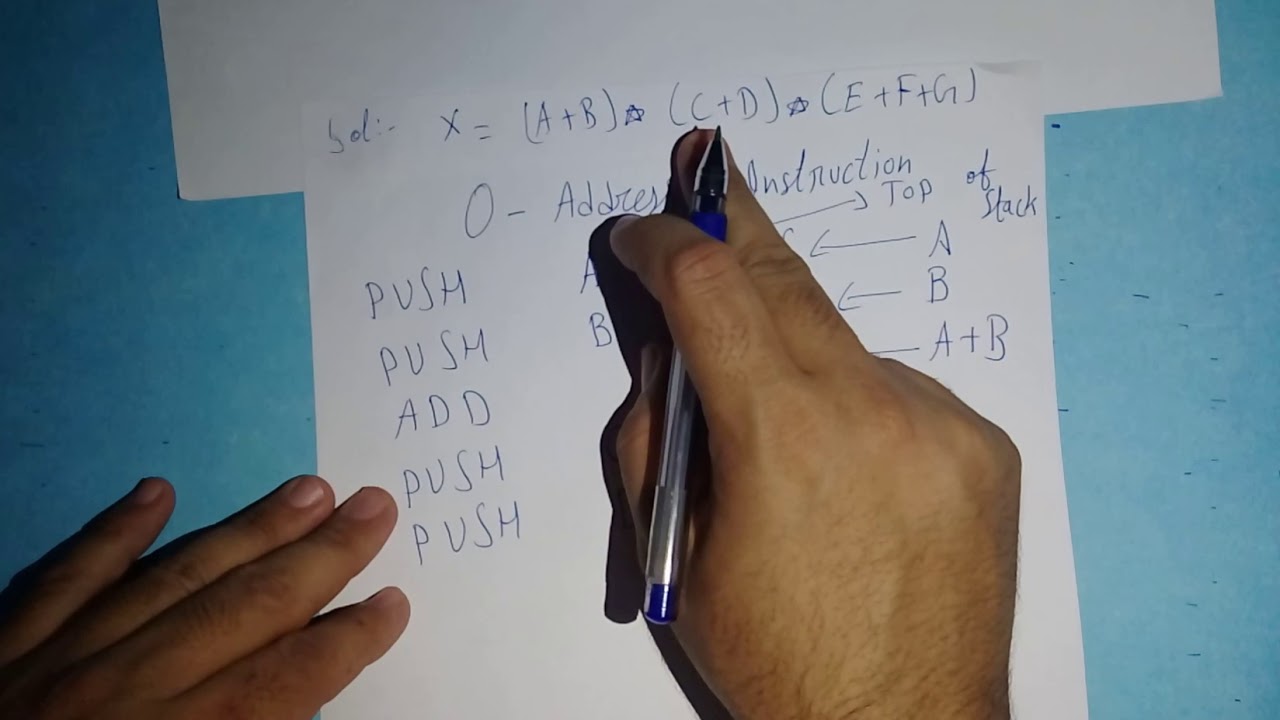 Sol:- X = (A+B) * (C+D) * (E+F+G)
0 - Address Instruction
→ TOP of Stack
PUSH A ← A
PUSH B ← B
ADD A+B
PUSH
PUSH